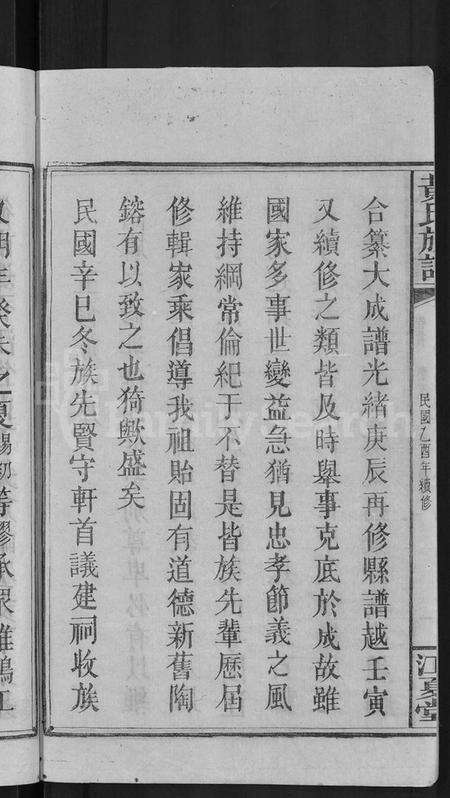 黃氏族譜
民國乙酉年續修
江夏堂
合纂大成譜光緒庚辰再修縣譜越壬寅
又續修之類皆及時舉事克底於成故雖
國家多事世變益急猶見忠孝節義之風
維持綱常倫紀于不替是皆族先輩歷屆
修輯家乘倡導我祖貽固有道德新舊陶
鎔有以致之也猗歟盛矣
民國辛巳冬族先賢守軒首議建祠收族
FamilySearch